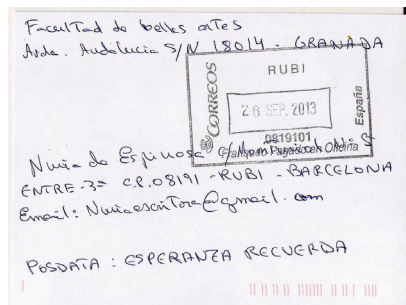 Facultad de bellas artes
Avda. Andalucia S/N 18014 - GRANADA
CORREOS
RUBI
España
26 SEP. 2013
0819101
Franqueo Pagado en Oficina
Nuria de Espinosa
ENTRE-3º C.P.08191-RUBI-BARCELONA
Email: Nuriaescritora@gmail.com
POSDATA : ESPERANZA RECUERDA